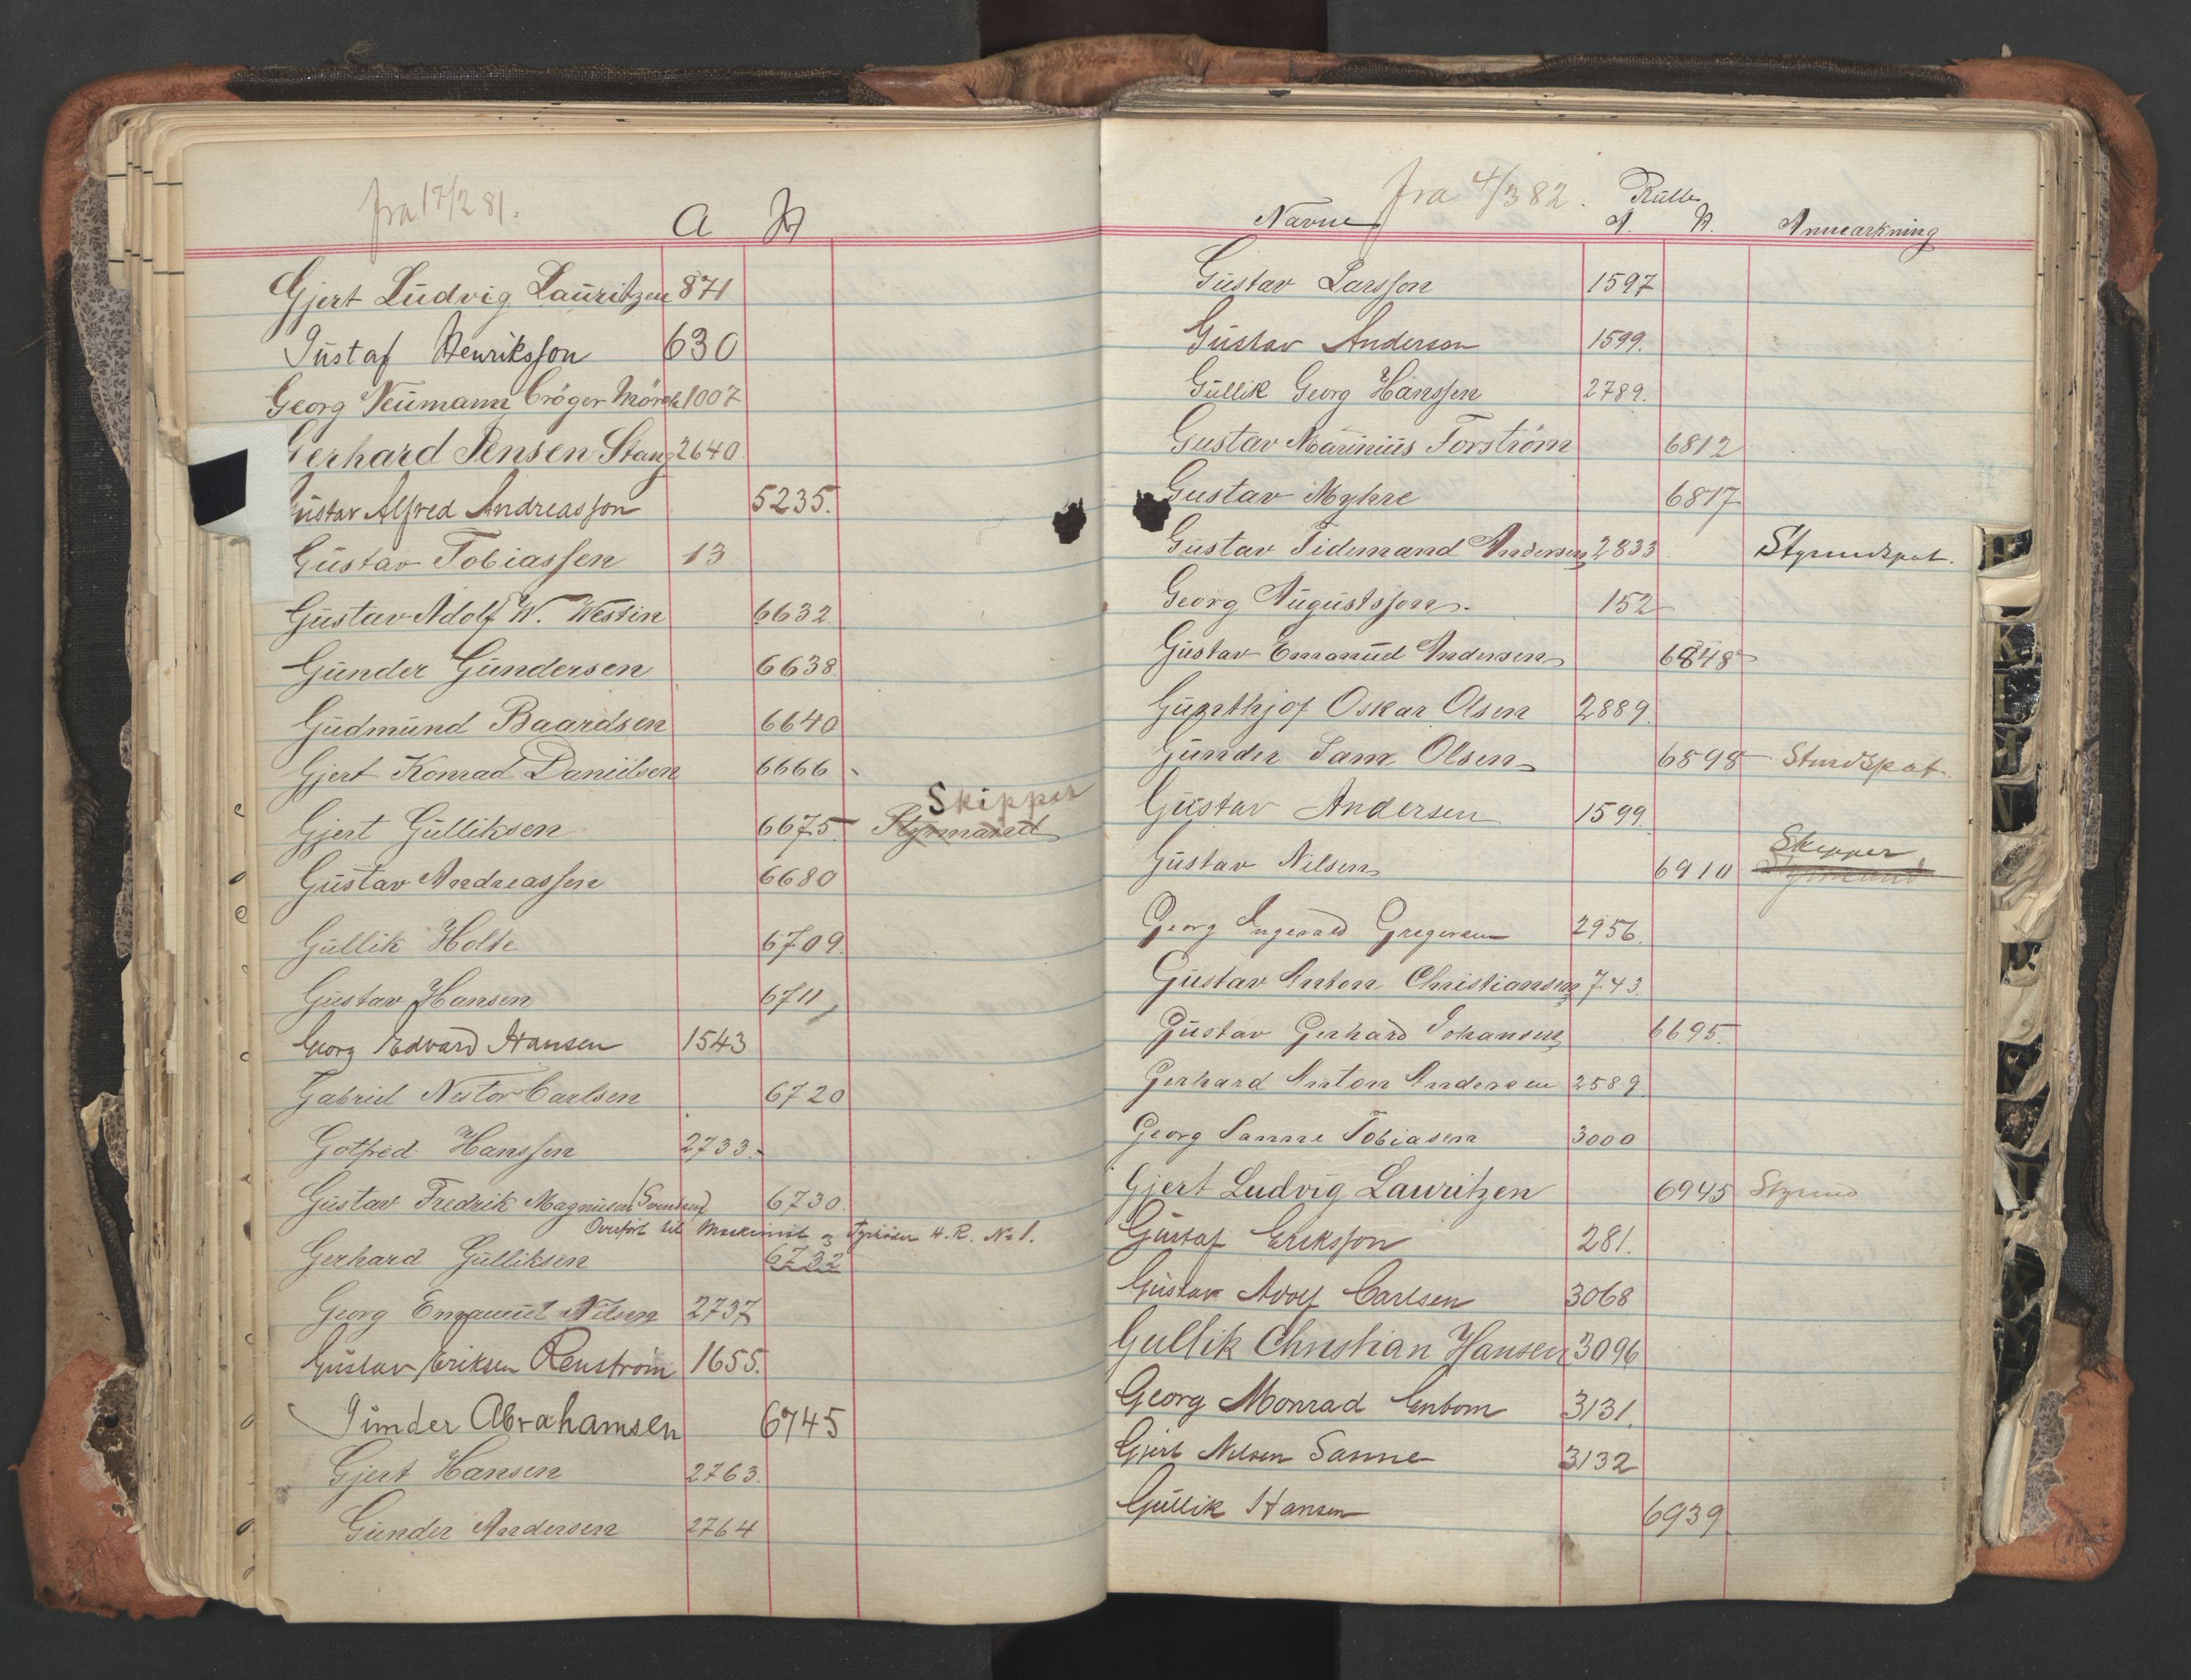 fra 17/2 81.
A H
Gjert Ludvig Lauritzen 871
Gustaf Henriksson 630
Georg Neumann Cröger Mörch 1007
Gerhard Jensen Stang 2640.
Gustav Alfred Andreasson 5235.
Gustav Tobiassen 13
Gustav Adolf W. Westin 6632
Gunder Gundersen 6638
Gudmund Baardsen 6640
Gjert Konrad Daniilsen 6666
Skipper
Gjert Gulliksen 6675 Styrmand
Gustav Andreassen 6680
Gullik Holte 6709.
Gustav Hansen 6711
Georg Edvard Hansen 1543
Gabriel Nestor Carlsen 6720
Gotfred Hanssen 2733.
Gustav Fredrik Magnusen (Svendsen) 6730
Overført til Maskinist og Fyrbøder H.R. No 1.
Gerhard Gulliksen 6732
Georg Emanuel Nilsen 2737
Gustav Eriksen Renström 1655.
Gunder Abrahamsen 6745
Gjert Hansen 2763.
Gunder Andersen 2764
fra 4/3 82. Rulle
Navne A. H. Anmærkning
Gustav Larsson 1597
Gustav Anderson 1599.
Gullik Georg Hanssen 2789.
Gustav Marinius Forström 6812
Gustav Myhre 6817
Gustav Tidemand Andersen 2833 Styrmdspat.
Georg Augustsson. 152
Gustav Emanuel Andersen 6848
Oskar Olsen 2889.
Gunder Sam Olsen 6898 Stmdspat
Gustav Andersen 1599.
Skipper
Gustav Nilsen 6910 Styrmand
Georg Ingevald Gregersen 2956.
Gustav Anton Christiansen 743.
Gustav Gerhard Johansen 6695.
Gerhard Anton Andersen 2589
Georg Sanne Tobiasen 3000
Gjert Ludvig Lauritzen 6945 Styrmd
Gustaf Eriksson 281.
Gustav Adolf Carlsen 3068
Gullik Christian Hansen 3096
Georg Monrad Enbom 3131.
Gjert Nilsen Sanne 3132
Gullik Hansen 6939